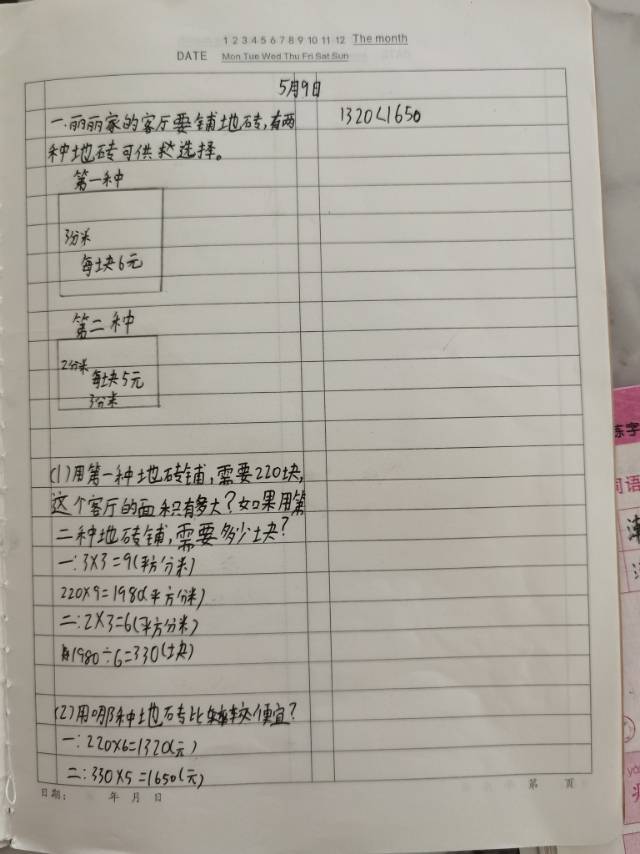 1 2 3 4 5 6 7 8 9 10 11 12 The month
DATE Mon Tue Wed Thu Fri Sat Sun
5月9日
一.丽丽家的客厅要铺地砖,有两
种地砖可供选择。
第一种
3分米
每块6元
第二种
2分米
每块5元
3分米
(1)用第一种地砖铺,需要220块,
这个客厅的面积有多大?如果用第
二种地砖铺,需要多少块?
一:3×3=9(平方分米)
220×9=1980(平方分米)
二:2×3=6(平方分米)
1980÷6=330(块)
(2)用哪种地砖比较便宜?
一:220×6=1320(元)
二:330×5=1650(元)
1320<1650
日期: 年 月 日
第 页
练字
词语